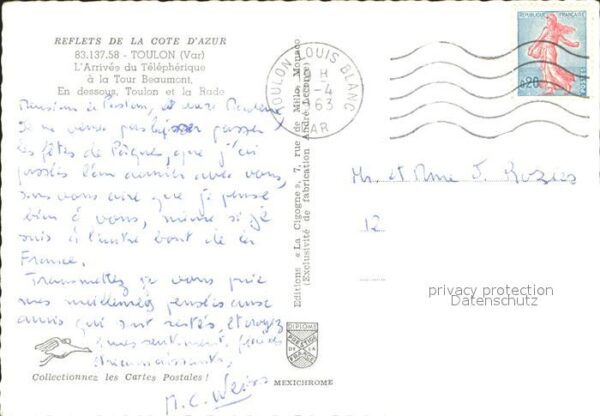 REFLETS DE LA COTE D'AZUR
83.137.58 - TOULON (Var)
L'Arrivée du Téléphérique
à la Tour Beaumont.
En dessous, Toulon et la Rade
Monsieur le Pasteur, et chère Madame
Je ne veux pas laisser passer
les fêtes de Pâques, que j'ai
passées l'an dernier avec vous,
sans vous dire que je pense
bien à vous, même si je
suis à l'autre bout de la
France.
Transmettez je vous prie
mes meilleures pensées aux
amis qui sont restés, et croyez
à mes sentiments
reconnaissants,
M. C. Weiss
Collectionnez les Cartes Postales !
Editions « La Cigogne », 7, rue de Millo, Monaco
(Exclusivité de fabrication André Leconte)
DIPLOME
PRESTIGE
DE LA
FRANCE
MEXICHROME
TOULON LOUIS BLANC
H
-4
1963
VAR
REPUBLIQUE FRANCAISE
0,20
POSTES
Mr. et Mme J.
12
privacy protection
Datenschutz